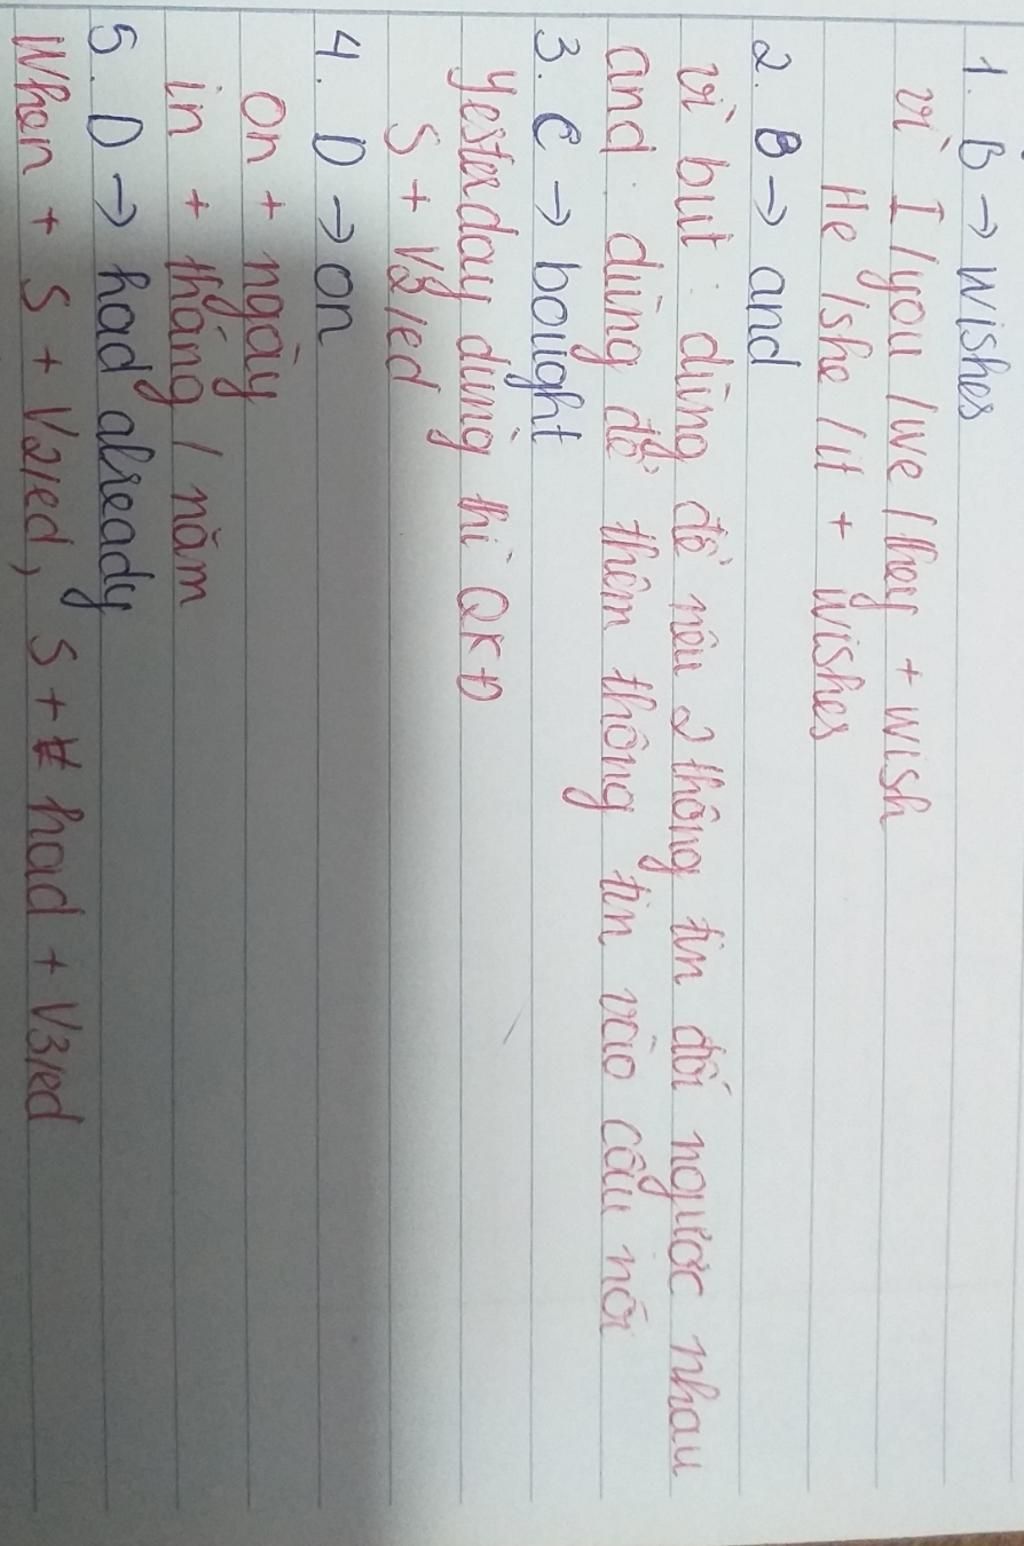 1. B → wishes
vì I / you / we / they + wish
He / she / it + wishes
2. B → and
vì but : dùng để nêu 2 thông tin đối ngược nhau
and : dùng để thêm thông tin vào câu nói
3. C → bought
Yesterday dùng thì QKĐ
S + V2/ed
4. D → on
on + ngày
in + tháng / năm
5. D → had already
When + S + V2/ed, S + had + V3/ed